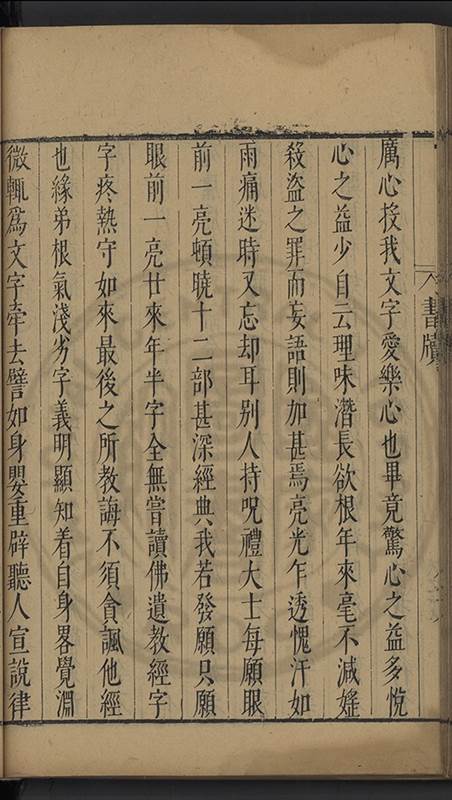 厲心投我文字愛樂心也畢竟驚心之益多悅
心之益少自云理味潛長欲根年來毫不減婬
殺盜之罪而妄語則加甚焉亮光乍透愧汗如
雨痛迷時又忘却耳别人持呪禮大士每願眼
前一亮頓曉十二部甚深經典我若發願只願
眼前一亮廿來年半字全無嘗讀佛遺教經字
字疼熱守如來最後之所教誨不須貪諷他經
也緣弟根氣淺劣字義明顯知着自身畧覺淵
微輒為文字牽去譬如身嬰重辟聽人宣說律
書牘